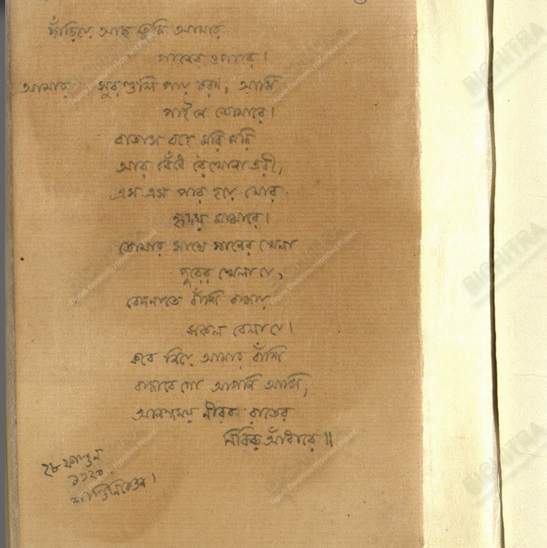 দাঁড়িয়ে আছ তুমি আমার
গানের ওপারে।
আমার সুরগুলি পায় চরণ, আমি
পাইনে তোমারে।
বাতাস বহে মরি মরি
আর বেঁধে রেখোনা তরী,
এস এস পার হয়ে মোর
হৃদয় মাঝারে।
তোমার সাথে গানের খেলা
দূরের খেলা যে,
বেদনাতে বাঁশি বাজায়
সকল বেলা যে।
কবে নিয়ে আমার বাঁশি
বাজাবে গো আপনি আসি,
আনন্দময় নীরব রাতের
নিবিড় আঁধারে॥
২৮ ফাল্গুন
১৩২০
শান্তিনিকেতন।